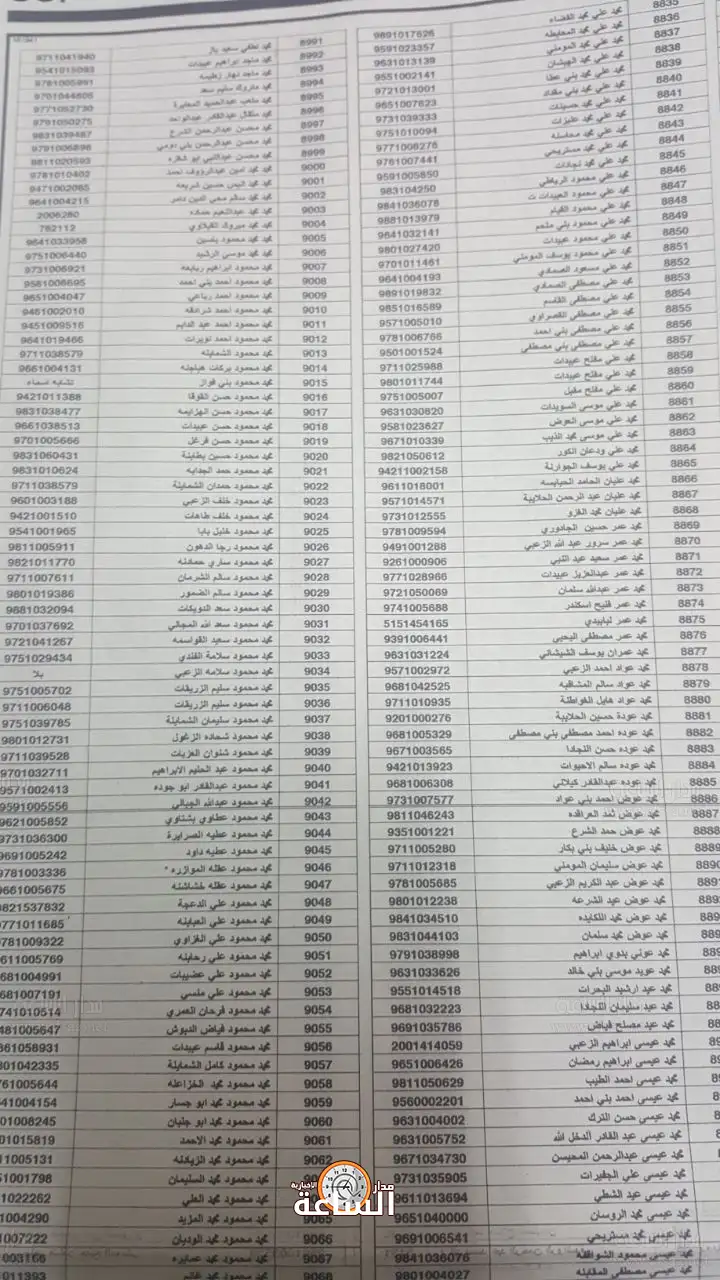 8835 محمد علي محمد القضاه 9891017626
8836 محمد علي محمد المحايطه 9591023357
8837 محمد علي محمد المومني 9631013139
8838 محمد علي محمد الهيشان 9551002141
8839 محمد علي محمد بني عطا 9721013001
8840 محمد علي محمد بني مقداد 9651007623
8841 محمد علي محمد حسينات 9731039333
8842 محمد علي محمد عليزات 9751010094
8843 محمد علي محمد محاسنه 9771006276
8844 محمد علي محمد مستريحي 9761007441
8845 محمد علي محمد نجادات 9591005850
8846 محمد علي محمود الرياطي 983104250
8847 محمد علي محمود العبيدات ت 9841036078
8848 محمد علي محمود 9881013979
8849 محمد علي محمود بني ملحم 9641032141
8850 محمد علي محمود عبيدات 9801027420
8851 محمد علي محمود يوسف المومني 9701011461
8852 محمد علي مسعود الصمادي 9641004193
8853 محمد علي مصطفى الصمادي 9891019832
8854 محمد علي مصطفى القاسم 9851016589
8855 محمد علي مصطفى القصراوي 9571005010
8856 محمد علي مصطفى بني احمد 9781006766
8857 محمد علي مصطفى بني مصطفى 9501001524
8858 محمد علي مفلح عبيدات 9711025988
8859 محمد علي مفلح عبيدات 9801011744
8860 محمد علي مفلح مقبل 9751005007
8861 محمد علي موسى السويدات 9631030820
8862 محمد علي موسى العوض 9581023627
8863 محمد علي موسى محمد الذيب 9671010339
8864 محمد علي ودعان الكور 9821050612
8865 محمد علي يوسف الجوارنة 94211002158
8866 محمد عليان الحامد الحبايسه 9611018001
8867 محمد عليان عبد الرحمن الحلايبة 9571014571
8868 محمد عليان محمد الغزو 9731012555
8869 محمد عمر حسين الجادوري 9781009594
8870 محمد عمر سرور عبد الله الزعبي 9491001288
8871 محمد عمر سعيد عبد النبي 9261000906
8872 محمد عمر عبدالعزيز عبيدات 9771028966
8873 محمد عمر عبدالله سلمان 9721050069
8874 محمد عمر فليح اسكندر 9741005688
8875 محمد عمر لبابيدي 5151454165
8876 محمد عمر مصطفى اليحيى 9391006441
8877 محمد عمران يوسف الشيشاني 9631031224
8878 محمد عواد احمد الزعبي 9571002972
8879 محمد عواد سالم المشاقبه 9681042525
8880 محمد عواد هايل الغواطنة 9711010935
8881 محمد عودة حسين الحلايبة 9201000276
8882 محمد عوده احمد مصطفى بني مصطفى 9681005329
8883 محمد عوده حسن النجادا 9671003565
8884 محمد عوده سالم الاحيوات 9421013923
8885 محمد عوده عبدالقادر كيلاني 9681006308
8886 محمد عوض احمد بني عواد 9731007577
8887 محمد عوض ثمد العراقده 9811046243
8888 محمد عوض حمد الشرع 9351001221
8889 محمد عوض خليف بني بكار 9711005280
889 محمد عوض سليمان المومني 9711012318
889 محمد عوض عبد الكريم الزعبي 9781005685
889 محمد عوض عيد الشرعه 9801012238
889 محمد عوض محمد اللكايده 9841034510
889 محمد عوض محمد سلمان 9831044103
889 محمد عوني بدوي ابراهيم 9791038998
88 محمد عويد موسى بني خالد 9631033626
88 محمد عيد ارشيد البحرات 9551014518
88 محمد عيد سليمان النجادا 9681032223
88 محمد عيد مصلح فياض 9691035786
89 محمد عيسى ابراهيم الزعبي 2001414059
89 محمد عيسى ابراهيم رمضان 9651006426
89 محمد عيسى احمد الطيب 9811050629
89 محمد عيسى احمد بني احمد 9560002201
8 محمد عيسى حسن الترك 9631004002
8 محمد عيسى عبد القادر الدخل الله 9631005752
8 محمد عيسى عبدالرحمن المحيسن 9671034730
محمد عيسى علي الجفيرات 9731035905
محمد عيسى عيد الشطي 9611013694
محمد عيسى محمد الروسان 9651040000
محمد عيسى محمد مستريحي 9691006541
محمد عيسى محمود الشواقفه 9841036076
محمد عيسى مصطفى المقابله 9801004027
8991 محمد لطفي سعيد باز 9711041940
8992 محمد ماجد ابراهيم عبيدات 9541015093
8993 محمد ماجد نهار زعليمه 9781005991
8994 محمد سليم سعد 9701044606
8995 محمد عبدالحميد المعايرة 9771052730
8996 محمد مثقال عبدالقادر عبدالواحد 9791050275
8997 محمد محسن عبدالرحمن الشرع 9831039487
8998 محمد محسن عبدالرحمن بني دومي 9791006898
8999 محمد محسن عبدالنبي ابو شقره 9811020593
9000 محمد امين عبدالرؤوف احمد 9781010402
9001 محمد اليس حسين شريعه 9471002065
9002 محمد سالم محي الدين ذامر 9641004215
9003 محمد عبدالنعيم حماده 2006280
9004 محمد مبروك الكيلاوي 762112
9005 محمد محمود ياسين 9641033958
9006 محمد موسى الرشيد 9751006440
9007 محمد محمود ابراهيم ربابعه 9731006921
9008 محمد محمود احمد بني احمد 9581006695
9009 محمد محمود احمد رباعي 9651004047
9010 محمد محمود احمد شرادقه 9461002010
9011 محمد محمود احمد عبد الدايم 9451009516
9012 محمد محمود احمد نويرات 9641019466
9013 محمد محمود الشمايله 9711038579
9014 محمد محمود بركات هياجنه 9661004131
9015 محمد محمود بني فواز تشابه اسماء
9016 محمد محمود حسن القوقا 9421011388
9017 محمد محمود حسن الهزايمه 9831038477
9018 محمد محمود حسن عبيدات 9661038513
9019 محمد محمود حسن فرغل 9701005666
9020 محمد محمود حسين بطاينة 9831060431
9021 محمد محمود حمد الجدايه 9831010624
9022 محمد محمود حمدان الشمايلة 9711038579
9023 محمد محمود خلف الزعبي 9601003188
9024 محمد محمود خلف طاهات 9421001510
9025 محمد محمود خليل بابا 9541001965
9026 محمد محمود رجا الدهون 9811005911
9027 محمد محمود ساري حمادنه 9821011770
9028 محمد محمود سالم الشرمان 9711007611
9029 محمد محمود سالم الضمور 9801019386
9030 محمد محمود سعد الدويكات 9681032094
9031 محمد محمود سعد الله المجالي 9701037692
9032 محمد محمود سعيد القواسمه 9721041267
9033 محمد محمود سلامة الفندي 9751029434
9034 محمد محمود سلامه الزعبي بلا
9035 محمد محمود سليم الزريقات 9751005702
9036 محمد محمود سليم الزريقات 9711006048
9037 محمد محمود سليمان الشمايلة 9751039785
9038 محمد محمود شحاده الزغول 9801012731
9039 محمد محمود شنوان العزبات 9711039528
9040 محمد محمود عبد الحليم الابراهيم 9701032711
9041 محمد محمود عبدالقادر ابو جوده 9571002413
9042 محمد محمود عبدالله الجبالي 9591005556
9043 محمد محمود عطاوي بشتاوي 9621005852
9044 محمد محمود عطيه الصرايرة 9731036300
9045 محمد محمود عطيه داود 9691005242
9046 محمد محمود عقله الموازره * 9781003336
9047 محمد محمود عقله خشاشنه 9661005675
9048 محمد محمود علي الدعجة 9821537832
9049 محمد محمود علي العبابنه 9771011685
9050 محمد محمود علي الغزاوي 9781009322
9051 محمد محمود علي رحابنه 611005769
9052 محمد محمود علي عضيبات 681004991
9053 محمد محمود علي ملسي 681007191
9054 محمد محمود فرحان العمري 741010514
9055 محمد محمود فياض الديوش 481005647
9056 محمد محمود قاسم عبيدات 861058931
9057 محمد محمود كامل الشمايلة 801042335
9058 محمد محمود محمد الخزاعله 761005644
9059 محمد محمود محمد ابو جسار 41004154
9060 محمد محمود محمد ابو جلبان 01008245
9061 محمد محمود محمد الاحمد 01015819
9062 محمد محمود محمد الزيادنه 11005131
محمد محمود محمد السليمان 51001798
محمد محمود محمد العلي 1022262
9065 محمد محمود محمد المزيد 1004290
9066 محمد محمود محمد الوديان 1007222
9067 محمد محمود محمد عمايره 003166
9068 محمد محمود محمد غانم 011393
مدار الساعة
الاخبارية